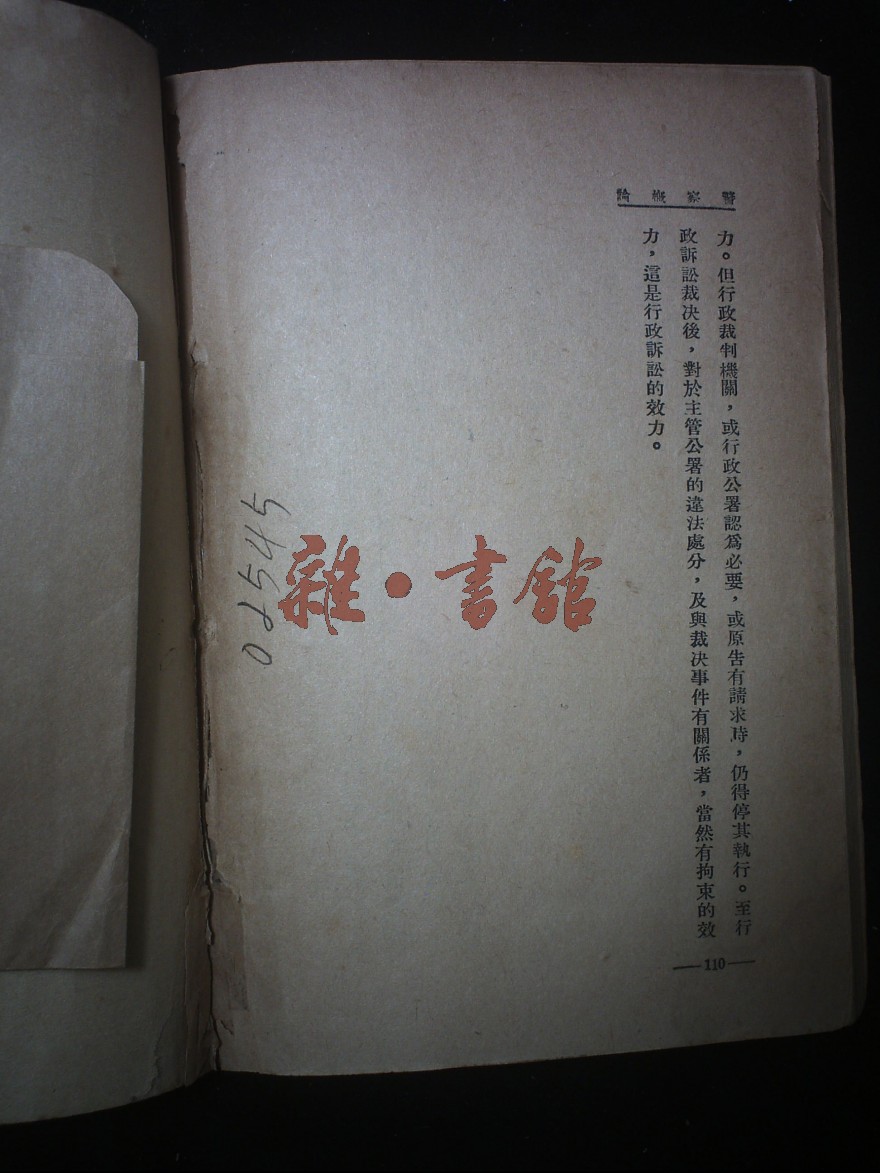 警察概論
力。但行政裁判機關，或行政公署認爲必要，或原告有請求時，仍得停其執行。至行
政訴訟裁决後，對於主管公署的違法處分，及與裁决事件有關係者，當然有拘束的效
力，這是行政訴訟的效力。
—110—
02545
雜·書館